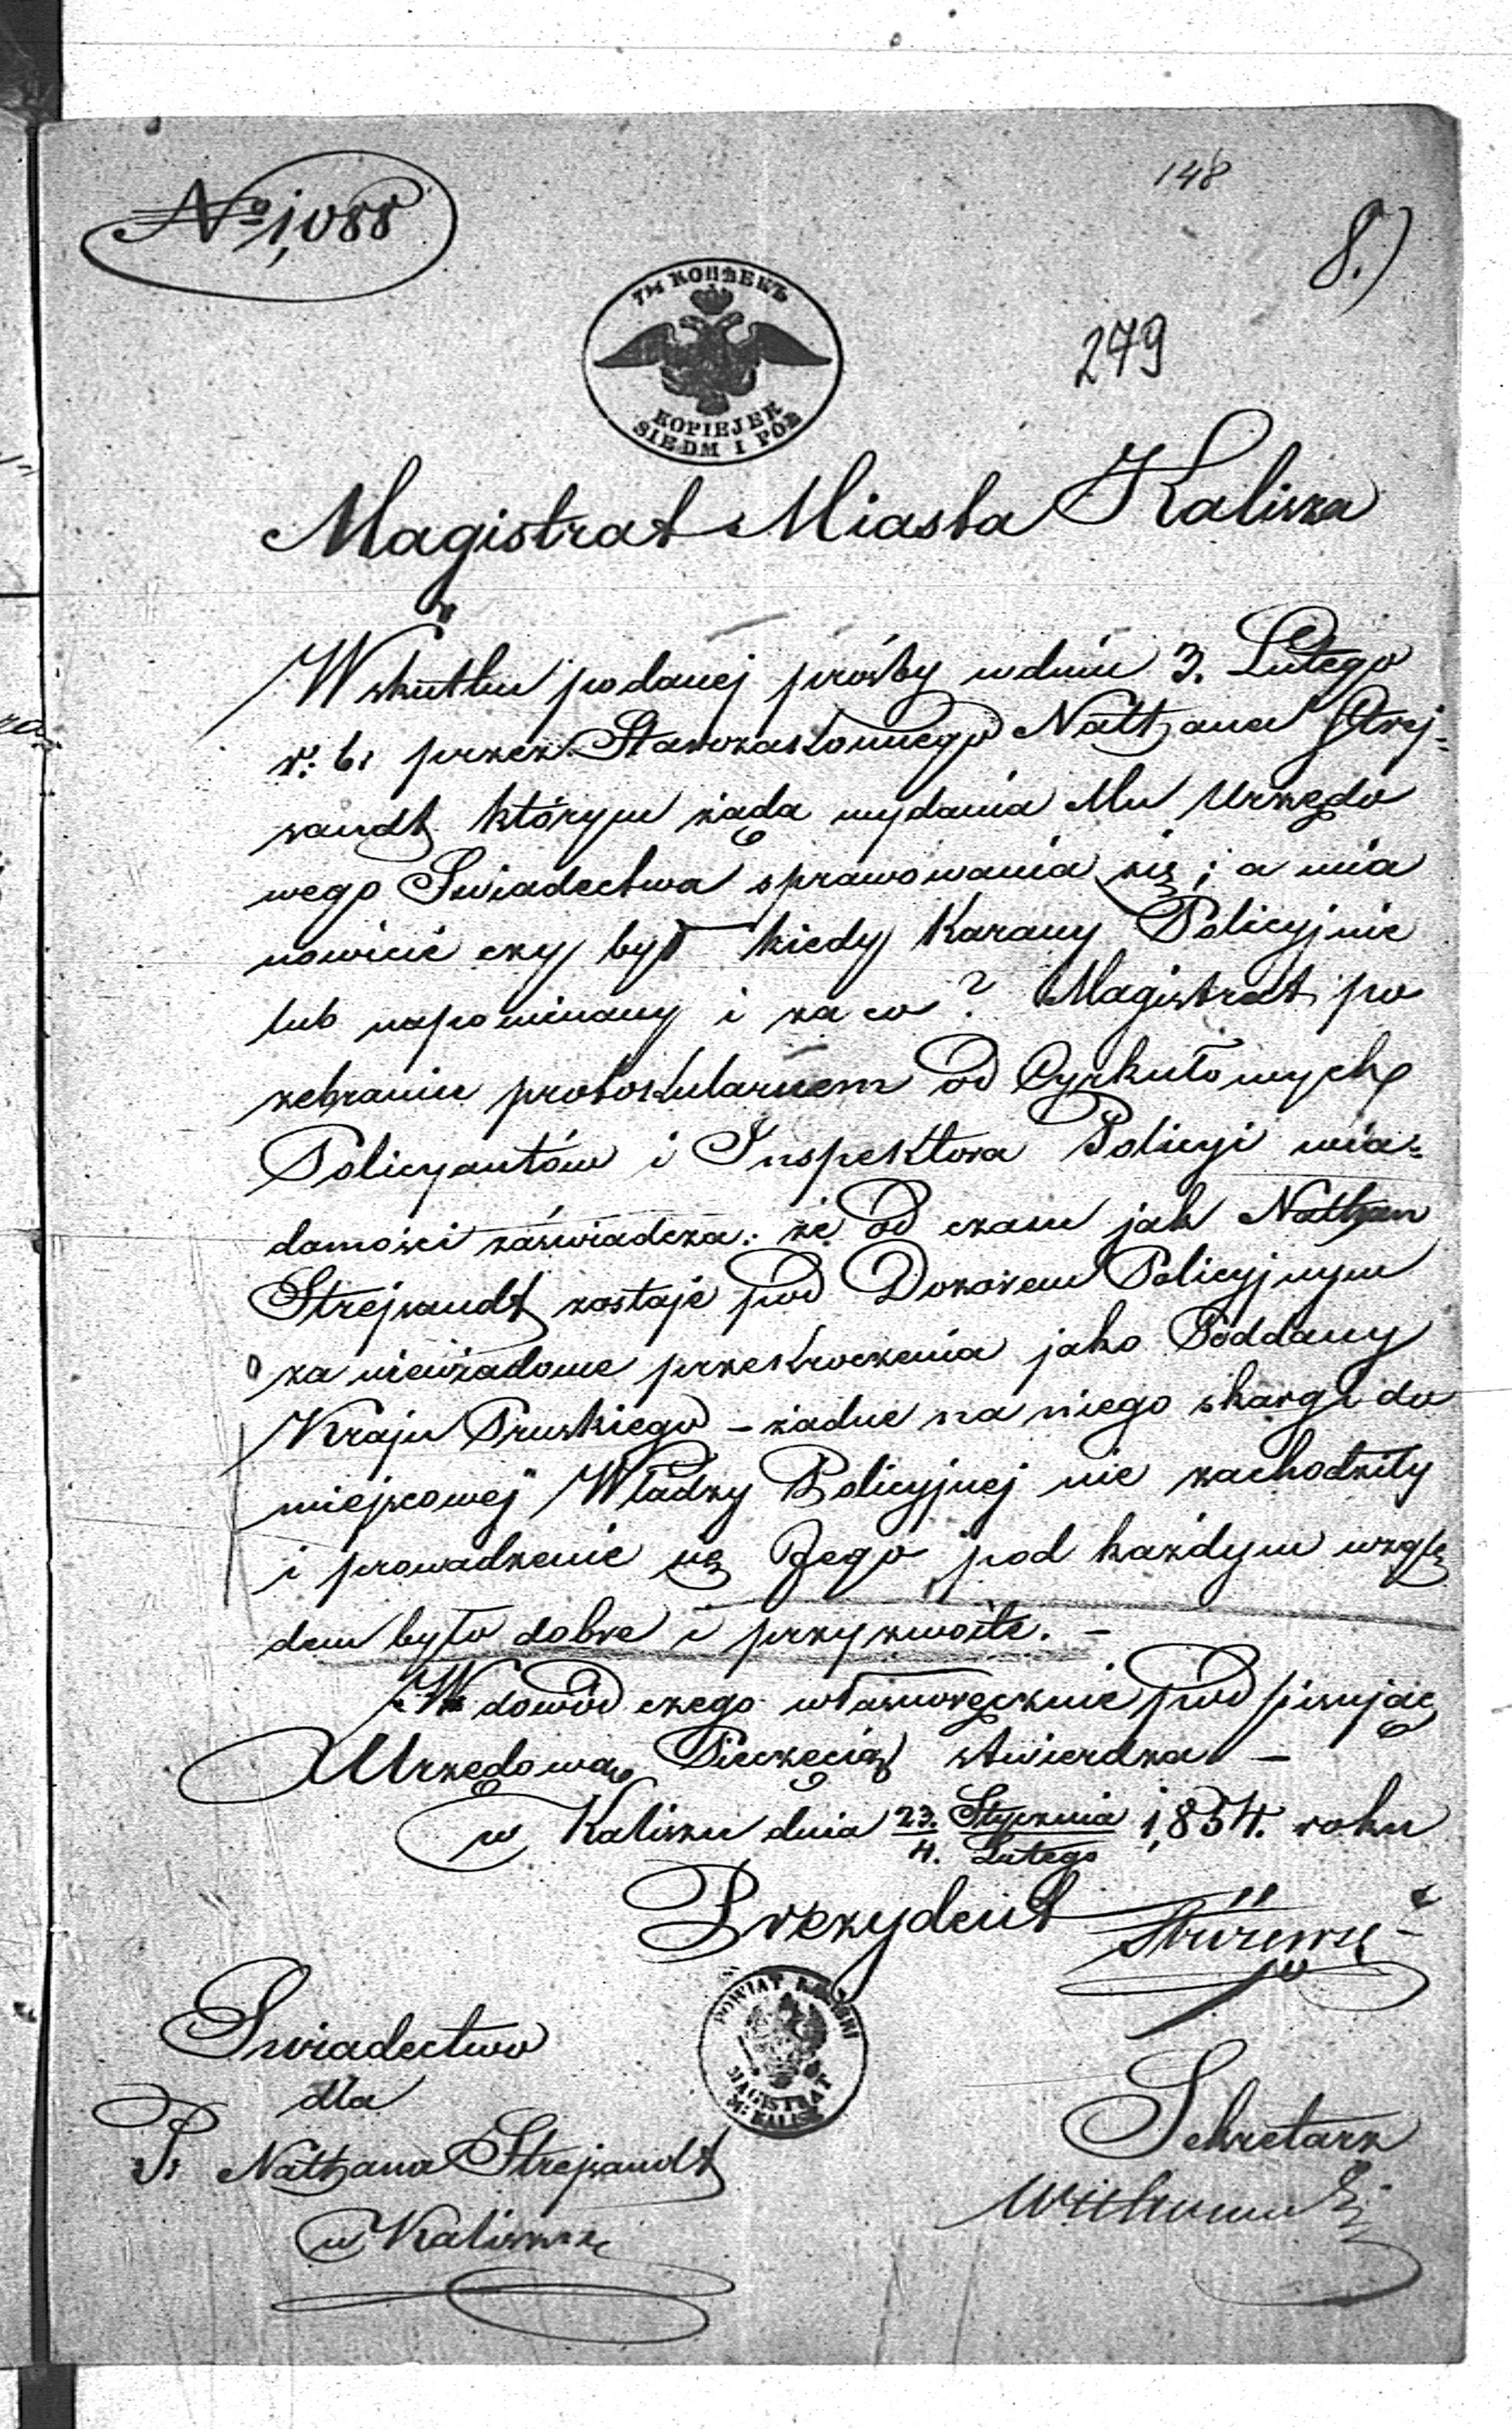 148
No 1,088
8.)
279
7½ КОПѢЕКЪ
KOPIEJEK
SIEDM I PÓŁ
Magistrat Miasta Kalisza
W skutku podanej prośby w dniu 3. Lutego
r: b: przez Starozakonnego Natthana Strej-
sandt którym żąda wydania Mu Urzędo
wego Swiadectwa sprawowania się; a mia
nowicie czy był kiedy Karany Policyjnie
lub napominany i za co? Magistrat po
zebraniu protokularnem od Cyrkułowych
Policyantów i Inspektora Policyi wia-
domości zaświadcza: że od czasu jak Natthan
Strejsandt zostaje pod Dozorem Policyjnym
za niewiadome przekroczenia jako Poddany
Kraju Pruskiego – żadne na niego skargi do
miejscowej Władzy Policyjnej nie zachodziły
i prowadzenie się Jego pod każdym wzglę
dem było dobre i przyzwoite. –
W dowód czego własnoręcznie podpisując
Urzędową Pieczęcią stwierdza –
w Kaliszu dnia 23. Stycznia / 4. Lutego 1,854. roku
Prezydent
POWIAT KALISKI
MAGISTRAT
M: KALISZ
Swiadectwo
dla
P: Natthana Strejsandt
w Kaliszu
Sekretarz